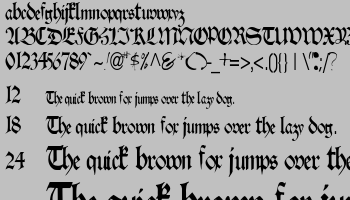 abcdefghijklmnopqrstuvwxyz
ABCDEFGHIJKLMNOPQRSTUVWX
0123456789~¨@$%^&*()-_+=>,<.{}[]|\/":;/?
12 The quick brown fox jumps over the lazy dog.
18 The quick brown fox jumps over the lazy dog.
24 The quick brown fox jumps over the
The quick brown fox jum